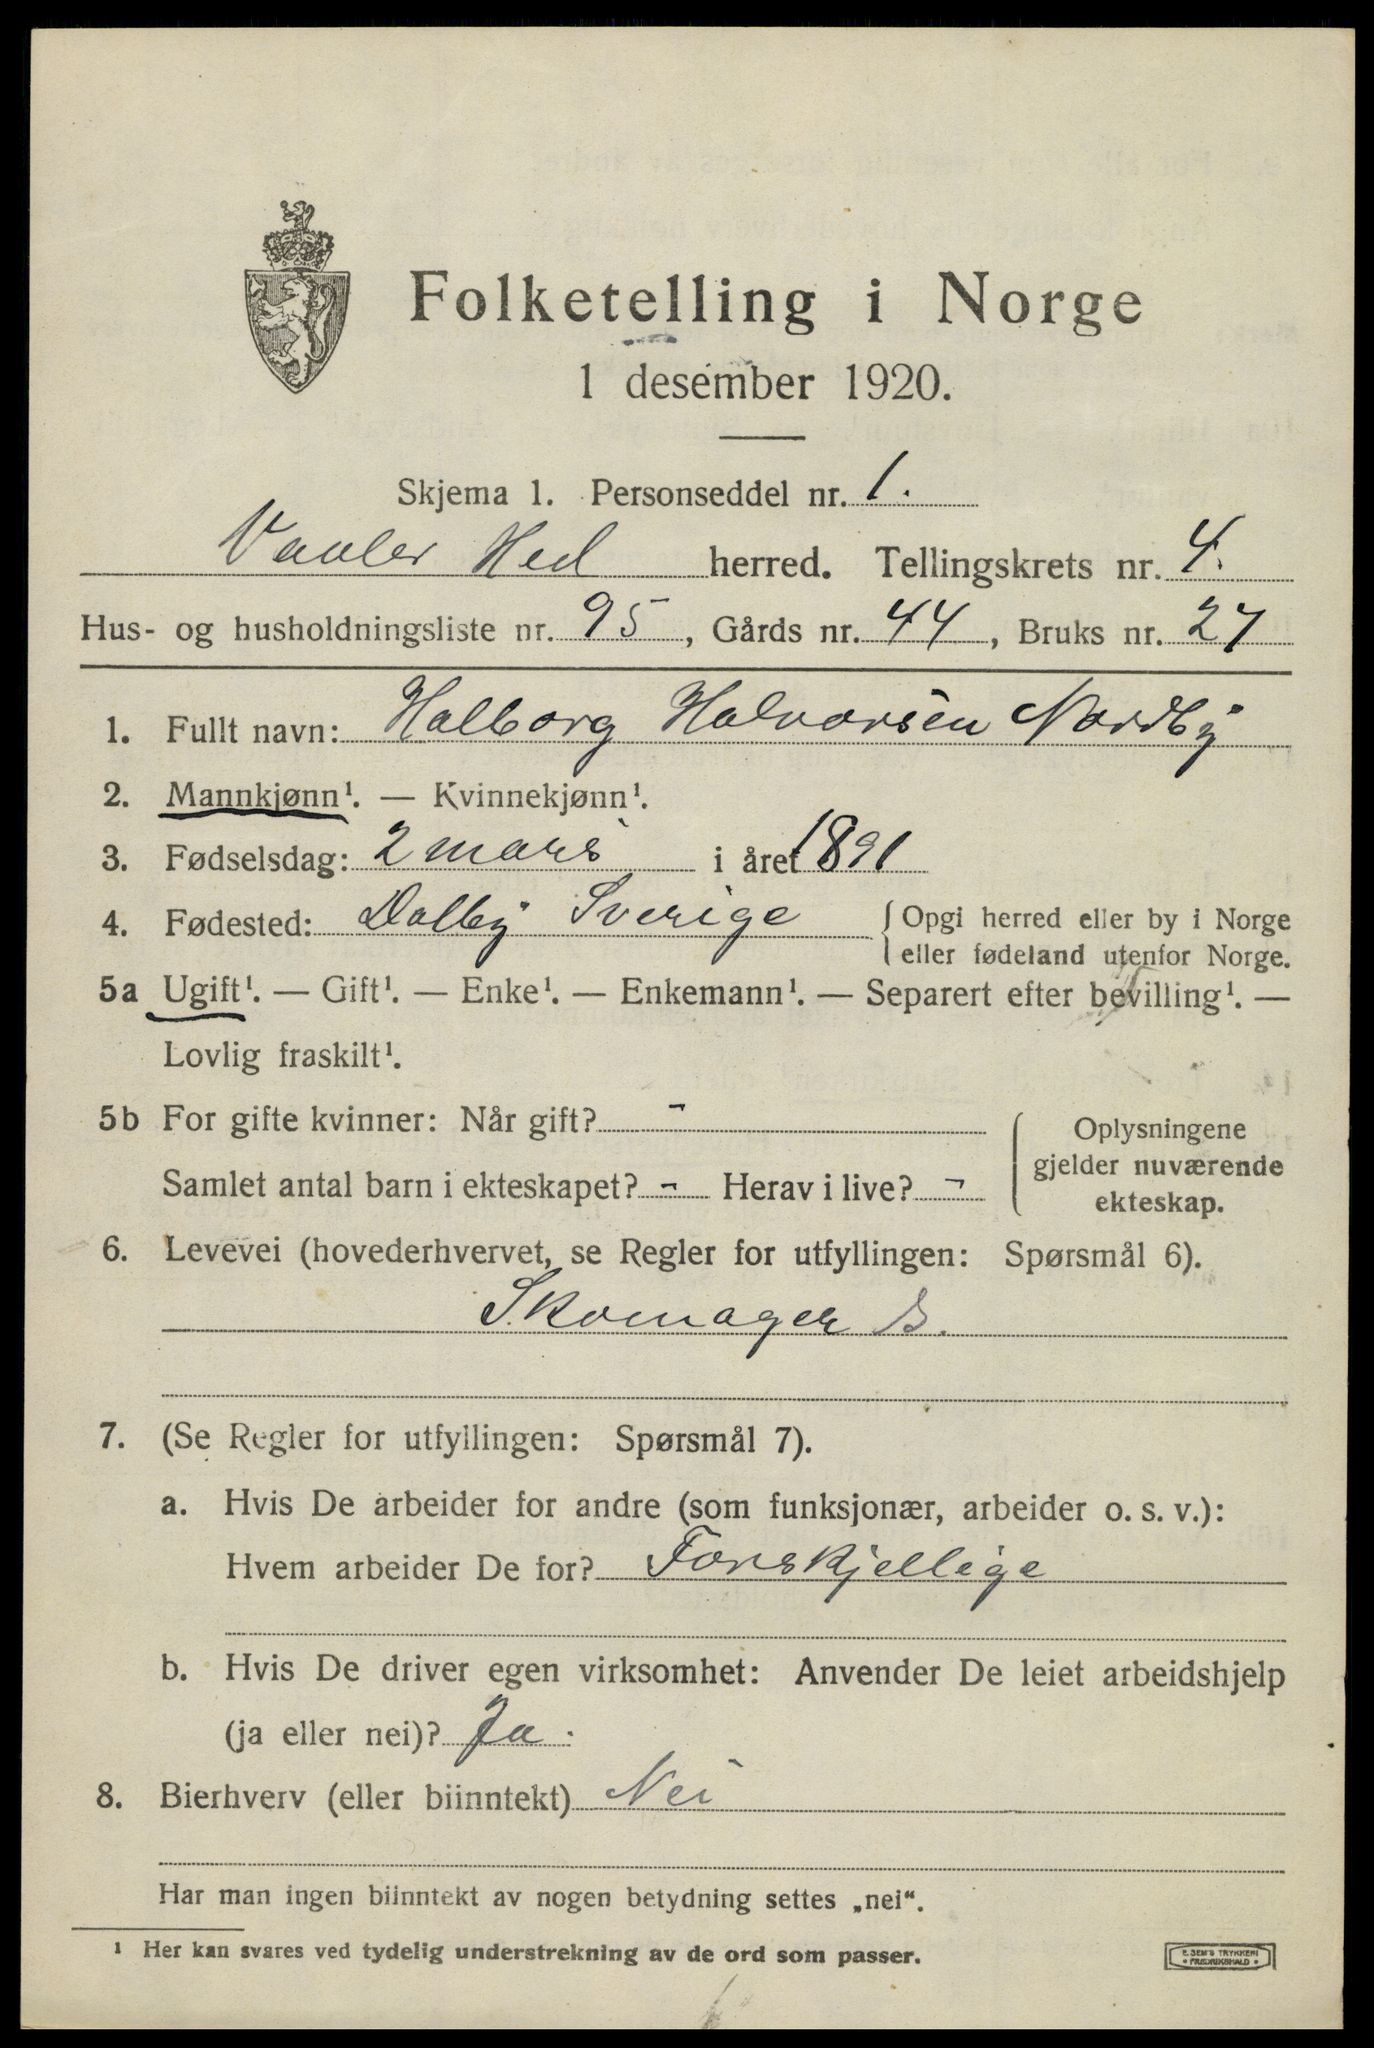 Folketelling i Norge
1 desember 1920.
Skjema 1. Personseddel nr. 1.
Vaaler Hed herred. Tellingskrets nr. 4.
Hus- og husholdningsliste nr. 95, Gårds nr. 44, Bruks nr. 27
1. Fullt navn: Halborg Halvorsen Nordby
2. Mannkjønn¹. — Kvinnekjønn¹.
3. Fødselsdag: 2 mars i året 1891
4. Fødested: Dalby Sverige { Opgi herred eller by i Norge
eller fødeland utenfor Norge.
5a Ugift¹. — Gift¹. — Enke¹. — Enkemann¹. — Separert efter bevilling¹. —
Lovlig fraskilt¹.
5b For gifte kvinner: Når gift? -
Samlet antal barn i ekteskapet? - Herav i live? -
Oplysningene
gjelder nuværende
ekteskap.
6. Levevei (hovederhvervet, se Regler for utfyllingen: Spørsmål 6).
Skomager S.
7. (Se Regler for utfyllingen: Spørsmål 7).
a. Hvis De arbeider for andre (som funksjonær, arbeider o. s. v.):
Hvem arbeider De for? Forskjellige
b. Hvis De driver egen virksomhet: Anvender De leiet arbeidshjelp
(ja eller nei)? Ja.
8. Bierhverv (eller biinntekt) Nei
Har man ingen biinntekt av nogen betydning settes „nei“.
¹ Her kan svares ved tydelig understrekning av de ord som passer.
E. SEM'S TRYKKERI
• FREDRIKSHALD •